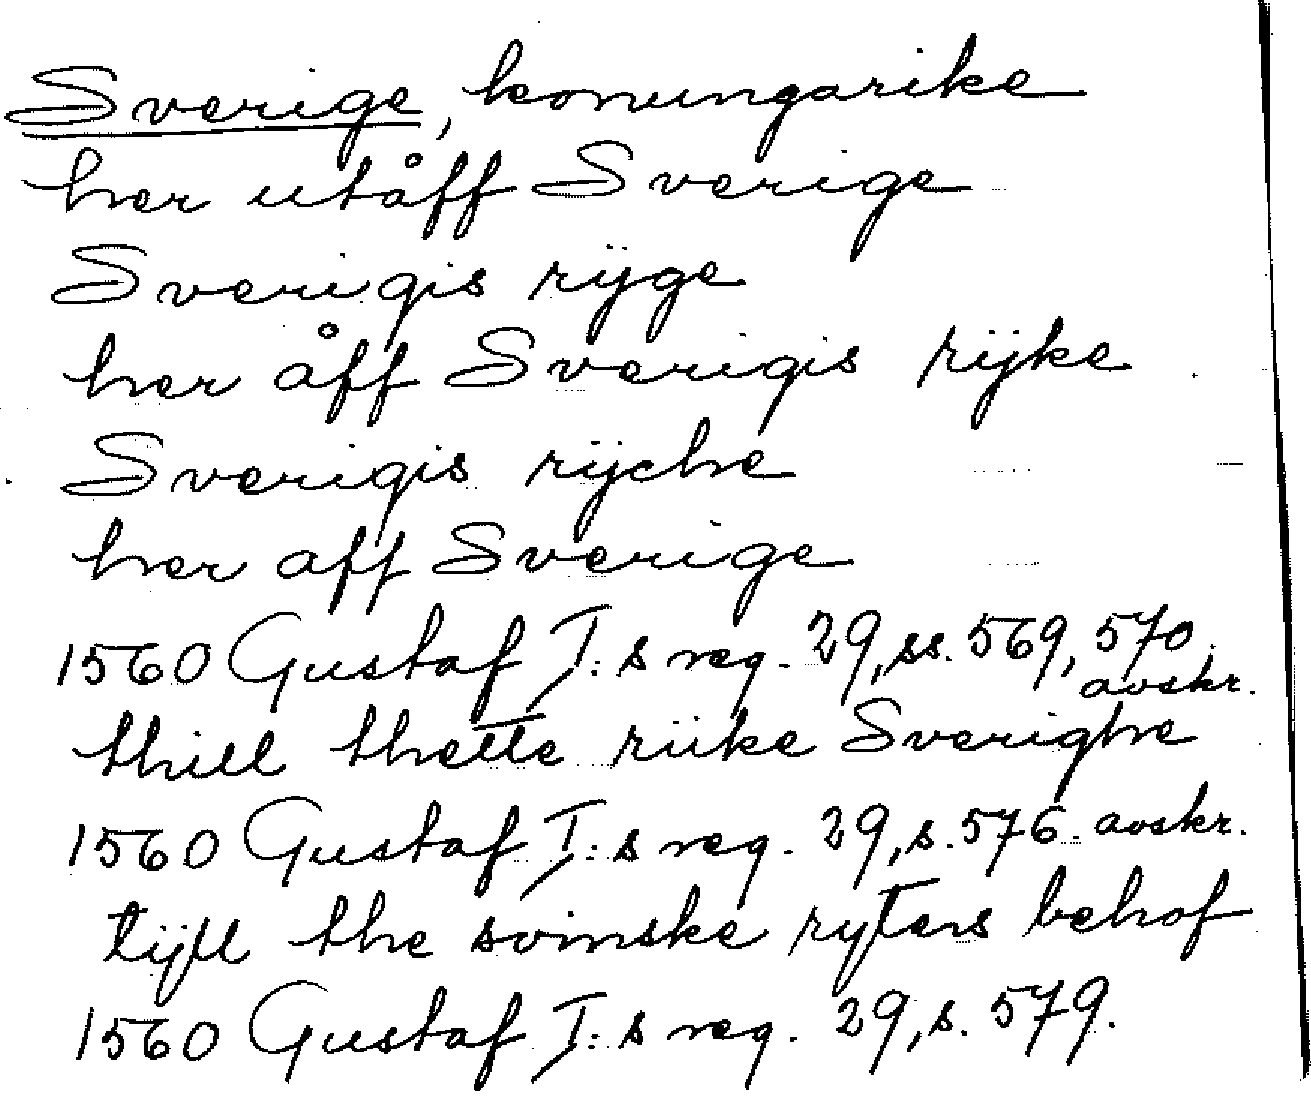 Sverige, konungarike
her utåff Sverige
Sverigis rÿge
her åff Sverigis rÿke
Sverigis rÿche
her aff Sverige
1560 Gustaf I:s reg. 29, ss. 569, 570, avskr.
thill thette riike Sverighe
1560 Gustaf I:s reg. 29, s. 576. avskr.
tijll the svinske ryters behof
1560 Gustaf I:s reg. 29, s. 579.